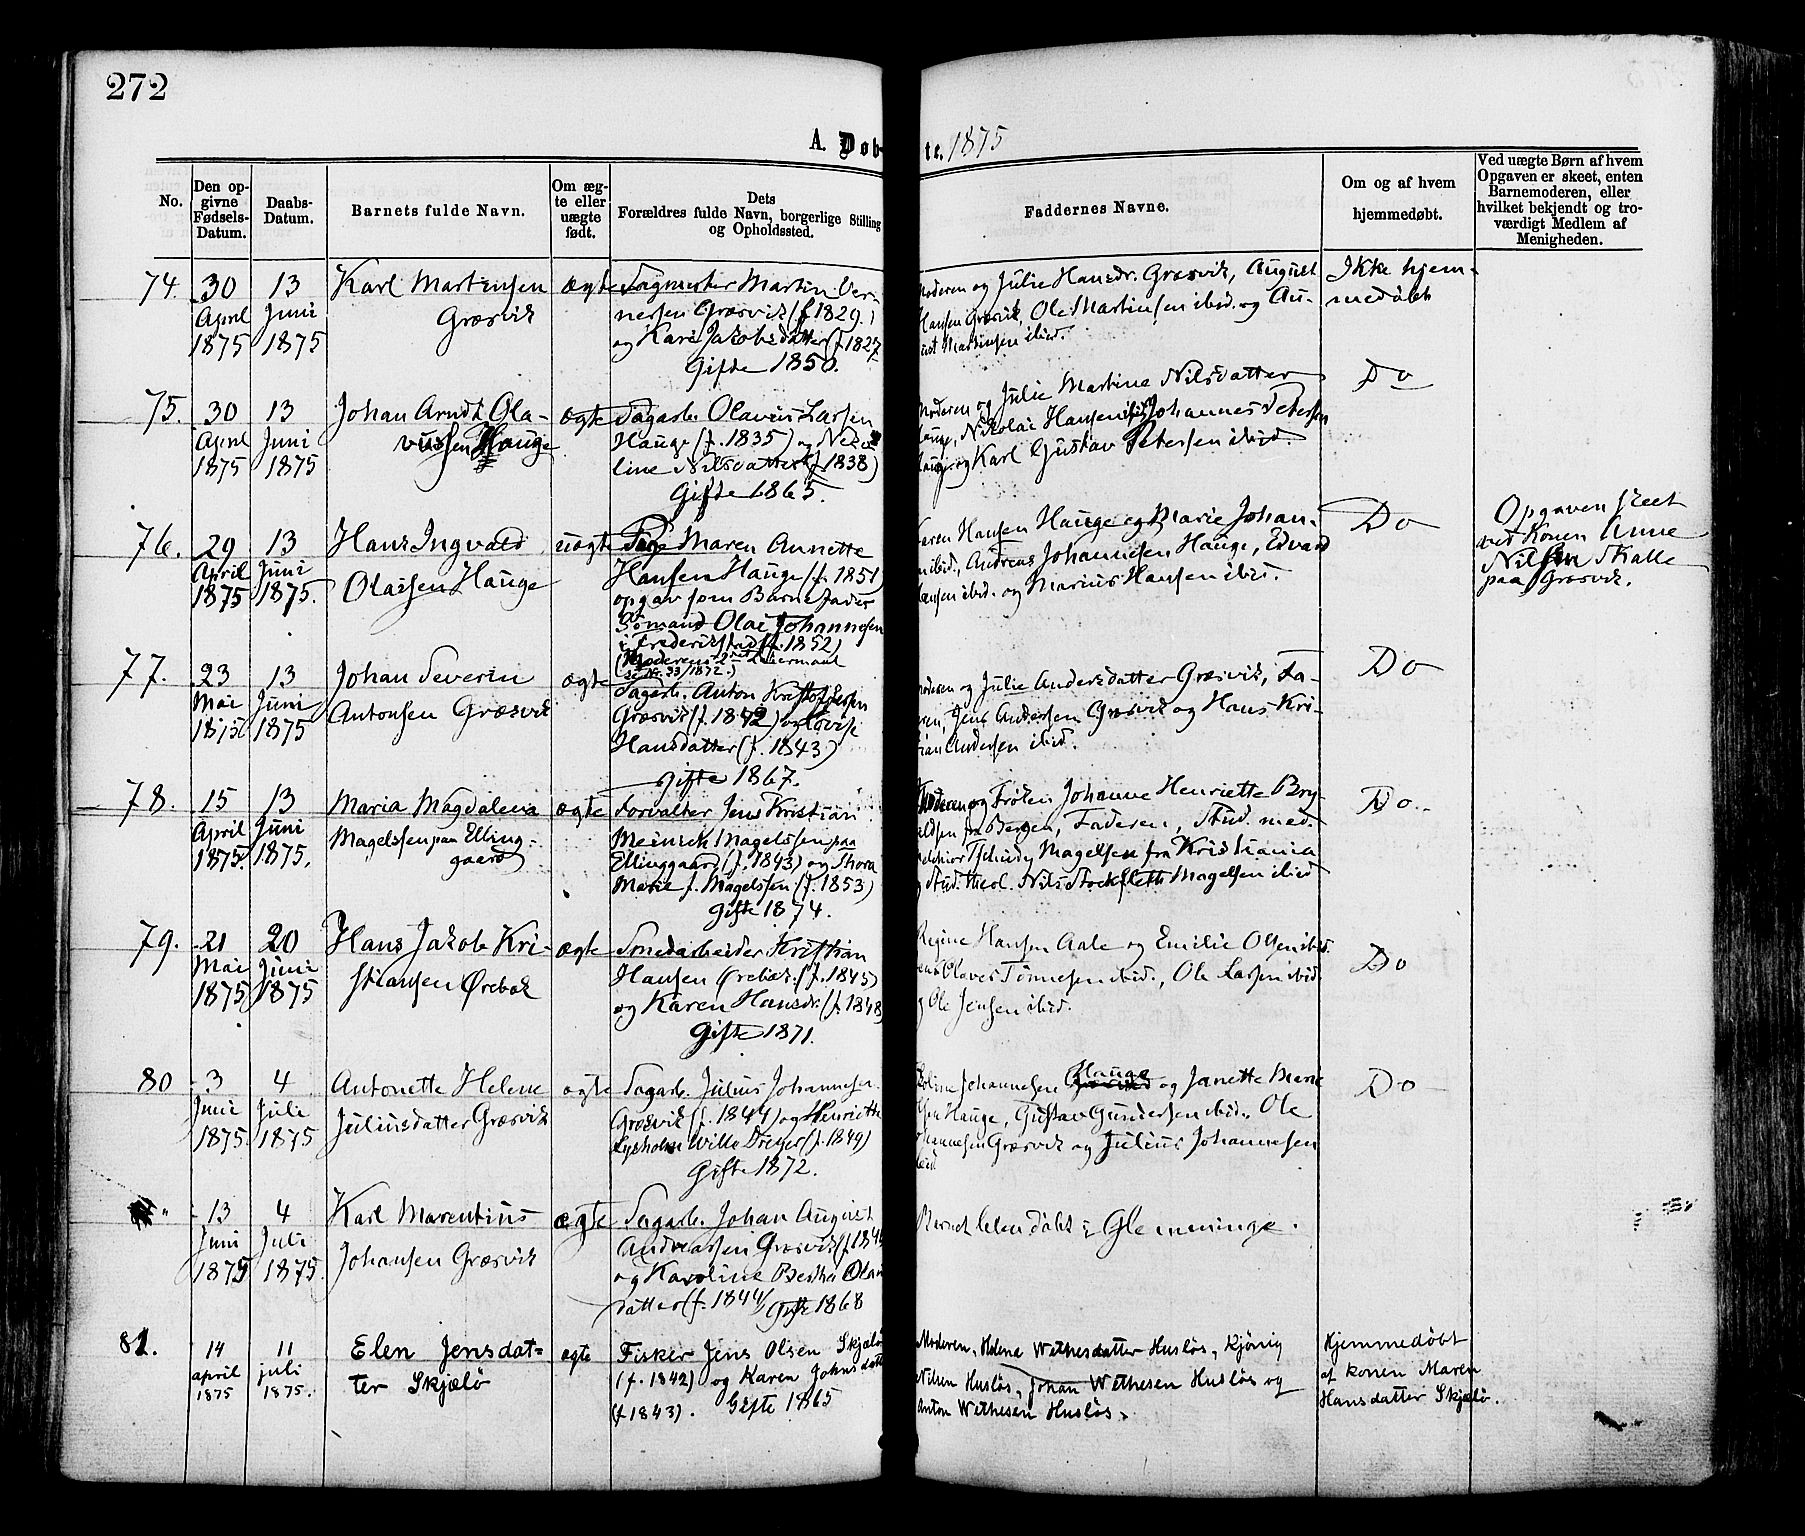 272
A. Døb- te. 1875
No.
Den op-
givne
Fødsels-
Datum.
Daabs-
Datum.
Barnets fulde Navn.
Om æg-
te eller
uægte
født.
Dets
Forældres fulde Navn, borgerlige Stilling
og Opholdssted.
Faddernes Navne.
Om og af hvem
hjemmedøbt.
Ved uægte Børn af hvem
Opgaven er skeet, enten
Barnemoderen, eller
hvilket bekjendt og tro-
værdigt Medlem af
Menigheden.
74.
30
April
1875
13
Juni
1875
Karl Martinsen
Græsvik
ægte
Sagmester Martin Ver-
nersen Græsvik (f. 1829.)
og Kari Jakobsdatter (f. 1827
Gifte 1850.
Moderen og Julie Hansdr. Græsvik, August
Hansen Græsvik, Ole Martinsen ibid. og Au-
gust Martinsen ibid.
Ikke hjem-
medøbt
75.
30
April
1875
13
Juni
1875
Johan Arndt Ola-
vussen Hauge
ægte
Sagarb. Olavus Larsen
Hauge (f. 1835) og
line Nilsdatter (f. 1838)
Gifte 1865.
Moderen og Julie Martine Nilsdatter
Hauge, Nikolai Hansen ibid. Johannes Petersen
Hauge og Karl Gustav Petersen ibid.
Do
76.
29
April
1875
13
Juni
1875.
Hans Ingvald
Olaisen Hauge
uægte
Maren Annette
Hansen Hauge (f. 1851)
opgav som Barnefader
Sømand Olai Johannesen
i Frederikstad (f. 1852)
(Moderens 2det Leiermaal
se No. 33/1872.)
Karen Hansen Hauge og Marie Johan-
n ibid., Andreas Johannesen Hauge, Edvard
Hansen ibid. og Marius Hansen ibid.
Do
Opgaven skeet
ved Konen Anne
Nilsen Skalle
paa Græsvik.
77.
23
Mai
1875
13
Juni
1875
Johan Severin
Antonsen Græsvik
ægte
Sagarb. Anton Kristoffersen
Græsvik (f. 1842) og Lovise
Hansdatter (f. 1843)
Gifte 1867.
Moderen og Julie Andersdatter Græsvik, Fa-
deren, Jens Andersen Græsvik og Hans Kri-
stian Andersen ibid.
Do
78.
15
April
1875.
13
Juni
1875.
Maria Magdalena
Magelssen paa Elling-
gaard
ægte
Forvalter Jens Kristian
Meinich Magelssen paa
Ellinggaard (f. 1843) og Thora
Marie f. Magelssen (f. 1853)
Gifte 1874.
Moderen og Frøken Johanne Henriette Bry-
ldsen fra Bergen, Faderen, Stud. med.
Melchior Tschudy Magelsen fra Kristiania
og Stud. theol. Nils Stockfleth Magelsen ibid
Do.
79.
21
Mai
1875
20
Juni
1875
Hans Jakob Kri-
stiansen Ørebæk
ægte
Smedarbeider Kristian
Hansen Ørebæk (f. 1845)
og Karen Hansdr. (f. 1848)
Gifte 1871.
Regine Hansen Aale og Emilie Olsen ibid.
Olaves Tønnesen ibid., Ole Larsen ibid
og Ole Jensen ibid.
Do
80
3
Juni
1875.
4
Juli
1875
Antonette Helene
Juliusdatter Græsvik
ægte
Sagarb. Julius Johannesen
Græsvik (f. 1844) og Henriette
Lysholm Wille Dreyer (f. 1849)
Gifte 1872.
Johannesen Hauge og Janette Marie
Hauge, Gustav Gundersen ibid., Ole
Johannesen Græsvik og Julius Johannesen
ibid
Do
"
13
Juni
1875
4
Juli
1875.
Karl Marentius
Johansen Græsvik
ægte
Sagarb. Johan August
Andreassen Græsvik (f. 1846
og Karoline Berthe Olaus
datter (f. 1844) Gifte 1868
Barnet blev døbt i Glemminge.
81.
14
april
1875
11
juli
1875.
Elen Jensdat=
ter Skjælø
ægte
Fisker Jens Olsen Skjælø
(f. 1842) og Karen Johnsdatter
(f 1843). Gifte 1865
Moderen, Helena Wethesdatter Husløs, Kjønig
Nilsen Husløs, Johan Wethesen Husløs og
Anton Wethesen Husløs.
Hjemmedøbt
af konen Maren
Hansdatter Skjælø.